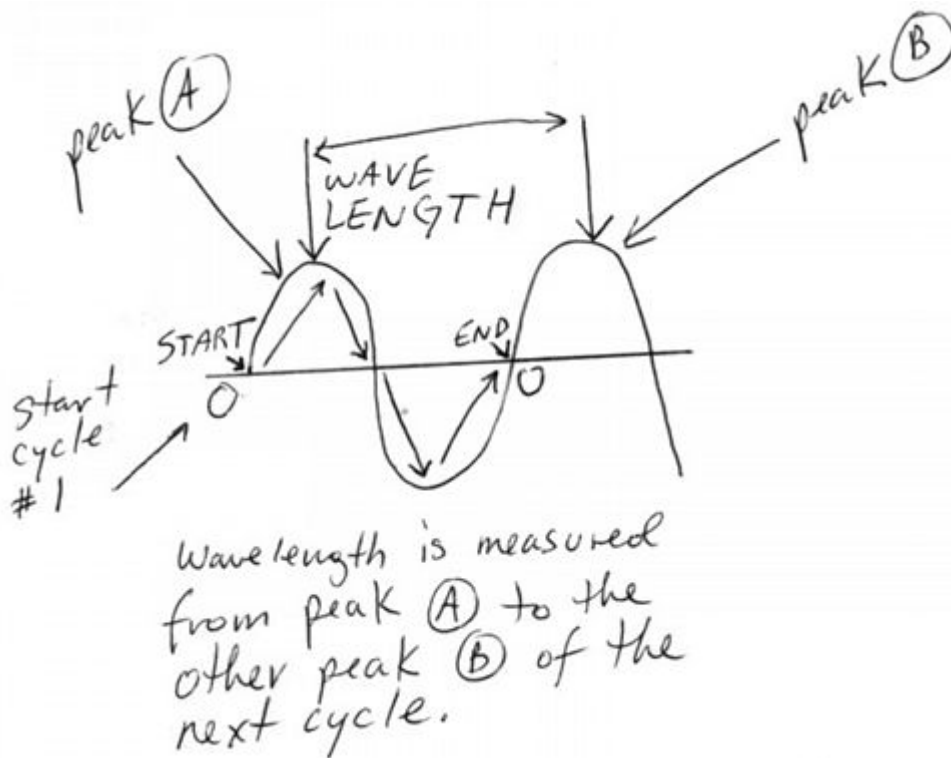 peak A
peak B
WAVE
LENGTH
START
END
O
O
Start
cycle
#1
Wavelength is measured
from peak A to the
other peak B of the
next cycle.